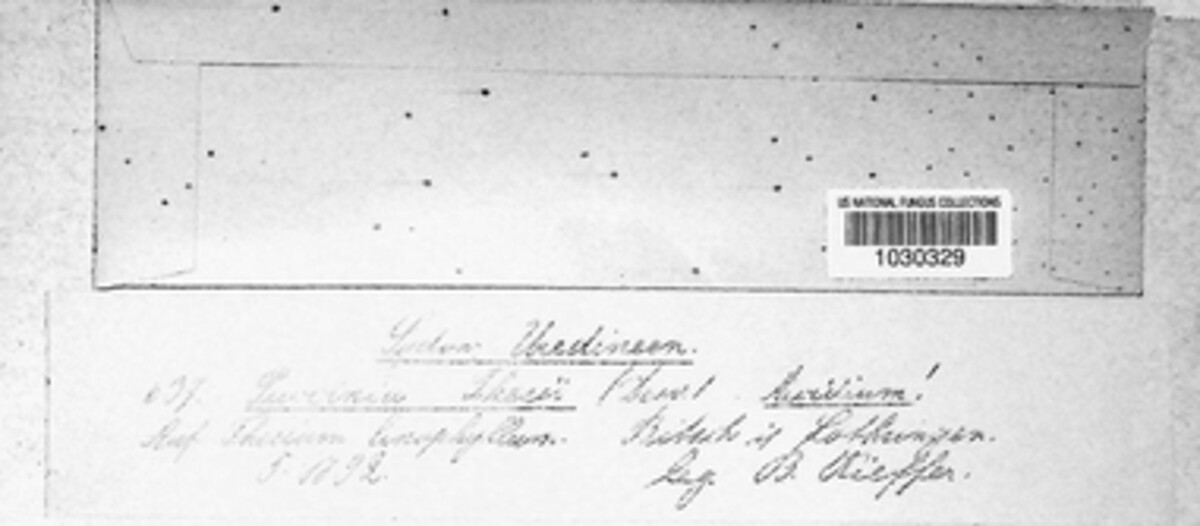 US NATIONAL FUNGUS COLLECTIONS
1030329
Sydow Uredineen.
637. Puccinia Thesii (Desv.) Aecidium!
Auf Thesium linophyllum. Bitsch i/ Lothringen.
5. 1892. Leg. B. Kieffer.